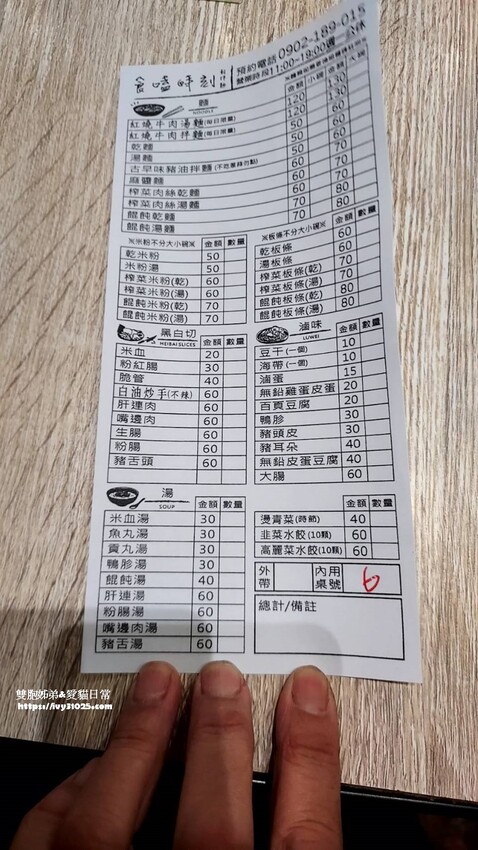 食嗑時刻
預約電話 0902-189-015
營業時段11:00~19:00週一公休
麵 NOODLE 金額 小碗 金額 大碗
紅燒牛肉湯麵(每日限量) 120 130
紅燒牛肉拌麵(每日限量) 120 130
乾麵 50 60
湯麵 50 60
古早味豬油拌麵(不吃蔥蒜勿點) 60 70
麻醬麵 60 70
榨菜肉絲乾麵 60 70
榨菜肉絲湯麵 60 70
餛飩乾麵 70 80
餛飩湯麵 70 80
※米粉不分大小碗※ 金額 數量
乾米粉 50
米粉湯 50
榨菜米粉(乾) 60
榨菜米粉(湯) 60
餛飩米粉(乾) 70
餛飩米粉(湯) 70
※板條不分大小碗※ 金額 數量
乾板條 60
湯板條 60
榨菜板條(乾) 70
榨菜板條(湯) 70
餛飩板條(乾) 80
餛飩板條(湯) 80
黑白切 HEIBAI SLICES 金額 數量
米血 20
粉紅腸 30
脆管 40
白油炒手(不辣) 60
肝連肉 60
嘴邊肉 60
生腸 60
粉腸 60
豬舌頭 60
滷味 LUWEI 金額 數量
豆干(一個) 10
海帶(一個) 10
滷蛋 15
無鉛雞蛋皮蛋 20
百頁豆腐 20
鴨胗 30
豬頭皮 30
豬耳朵 40
無鉛皮蛋豆腐 40
大腸 60
湯 SOUP 金額 數量
米血湯 30
魚丸湯 30
貢丸湯 30
鴨胗湯 30
餛飩湯 40
肝連湯 60
粉腸湯 60
嘴邊肉湯 60
豬舌湯 60
金額 數量
燙青菜(時節) 40
韭菜水餃(10顆) 60
高麗菜水餃(10顆) 60
外帶 內用桌號 6
總計/備註
雙胞姊弟&愛貓日常
https://ivy31025.com